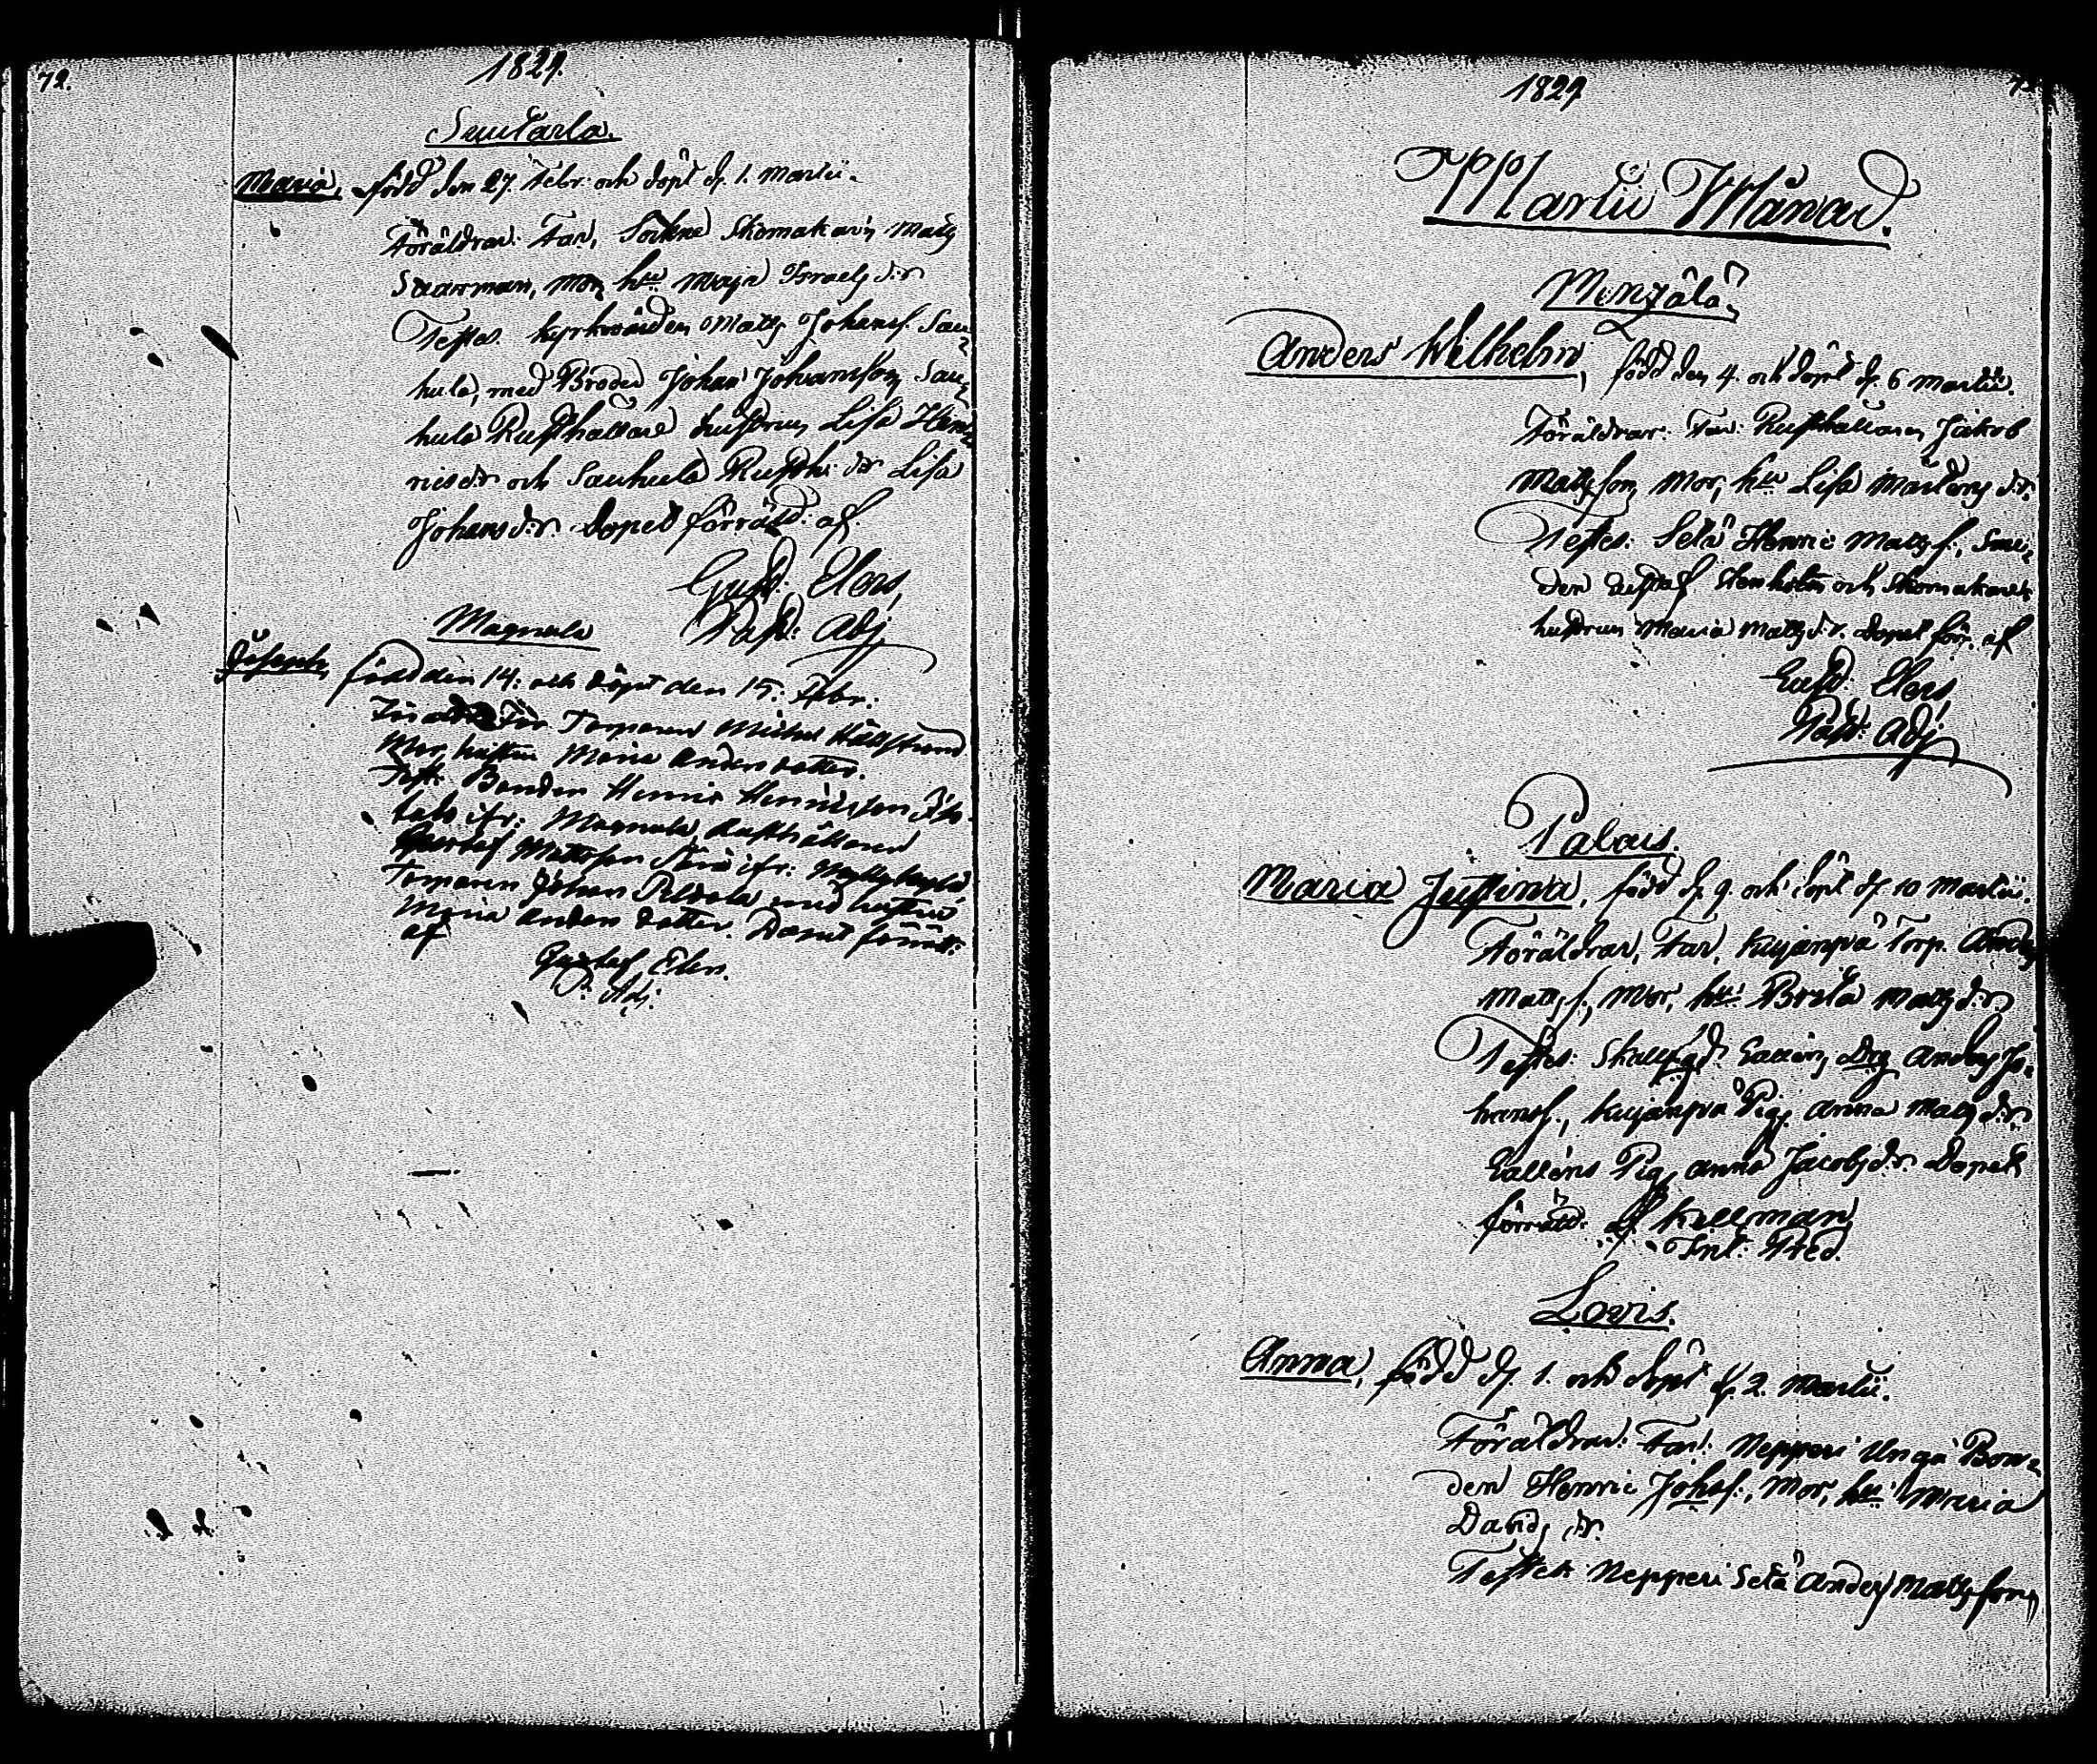 72.
1829.
Suutarla.
Maria, född den 27. Febr: och döpt d. 1. Martii.
Föräldrar: Far, Sockne Skomakarn Mats
Saarman, Mor, hu Maja Israels dr
Testes: Kyrkvärden Matts Johans. Sau-
hula, med Broder Johan Johansson, Sau-
hula Rusthållare hustrun Lisa Hen-
ricsdr och Sauhula Rusth: dr Lisa
Johansdr. Dopet förrätt: af.
Gust: Elers,
Past: Adj
Magnula
Joseph, född den 14: och döpt den 15: Febr:
Far Torparen Michel Hällström
Mor, hustrun Maria Andersdotter.
Test: Bonden Henric Henricsson
ifr: Magnula, Rusthållaren
Gustaf Mattsson ifr:
Torparen Johan med hustru
Maria Anders dotter. Dopet förrätt:
af
Gustaf Elers.
P. Adj:
1829
Martii Månad.
Monjälä
Anders Wilhelm, född den 4. och döpt d. 6 Martii.
Föräldrar: Far: Rusthållaren Jakob
Matsson, Mor, hu Lisa Mårtens dr.
Testes: Setä Henric Matss., Sme-
den Stenholm och Skomakare
hustrun Maria Mats dr. Dopet förr. af
Gust: Elers
Past: Adj
Palous.
Maria Justina, född d. 9. och döpt d. 10 Martii.
Föräldrar, Far, Kujanpä Torp. Anders
Matss., Mor, hu: Brita Mats dr
Testes: Drg Anders Jo-
hanss., Kujanpä Pig. Anna Mats dr,
Pig. Anna Jacobs dr. Dopet
förrätt: af Kellman
Pred.
Loors.
Anna, född d. 1. och döpt d. 2. Martii.
Föräldrar: Far: Nepperi Unga Bon-
den Henric Johss:, Mor, hu: Maria
Davids dr.
Testes: Nepperi Setä Anders Matsson,